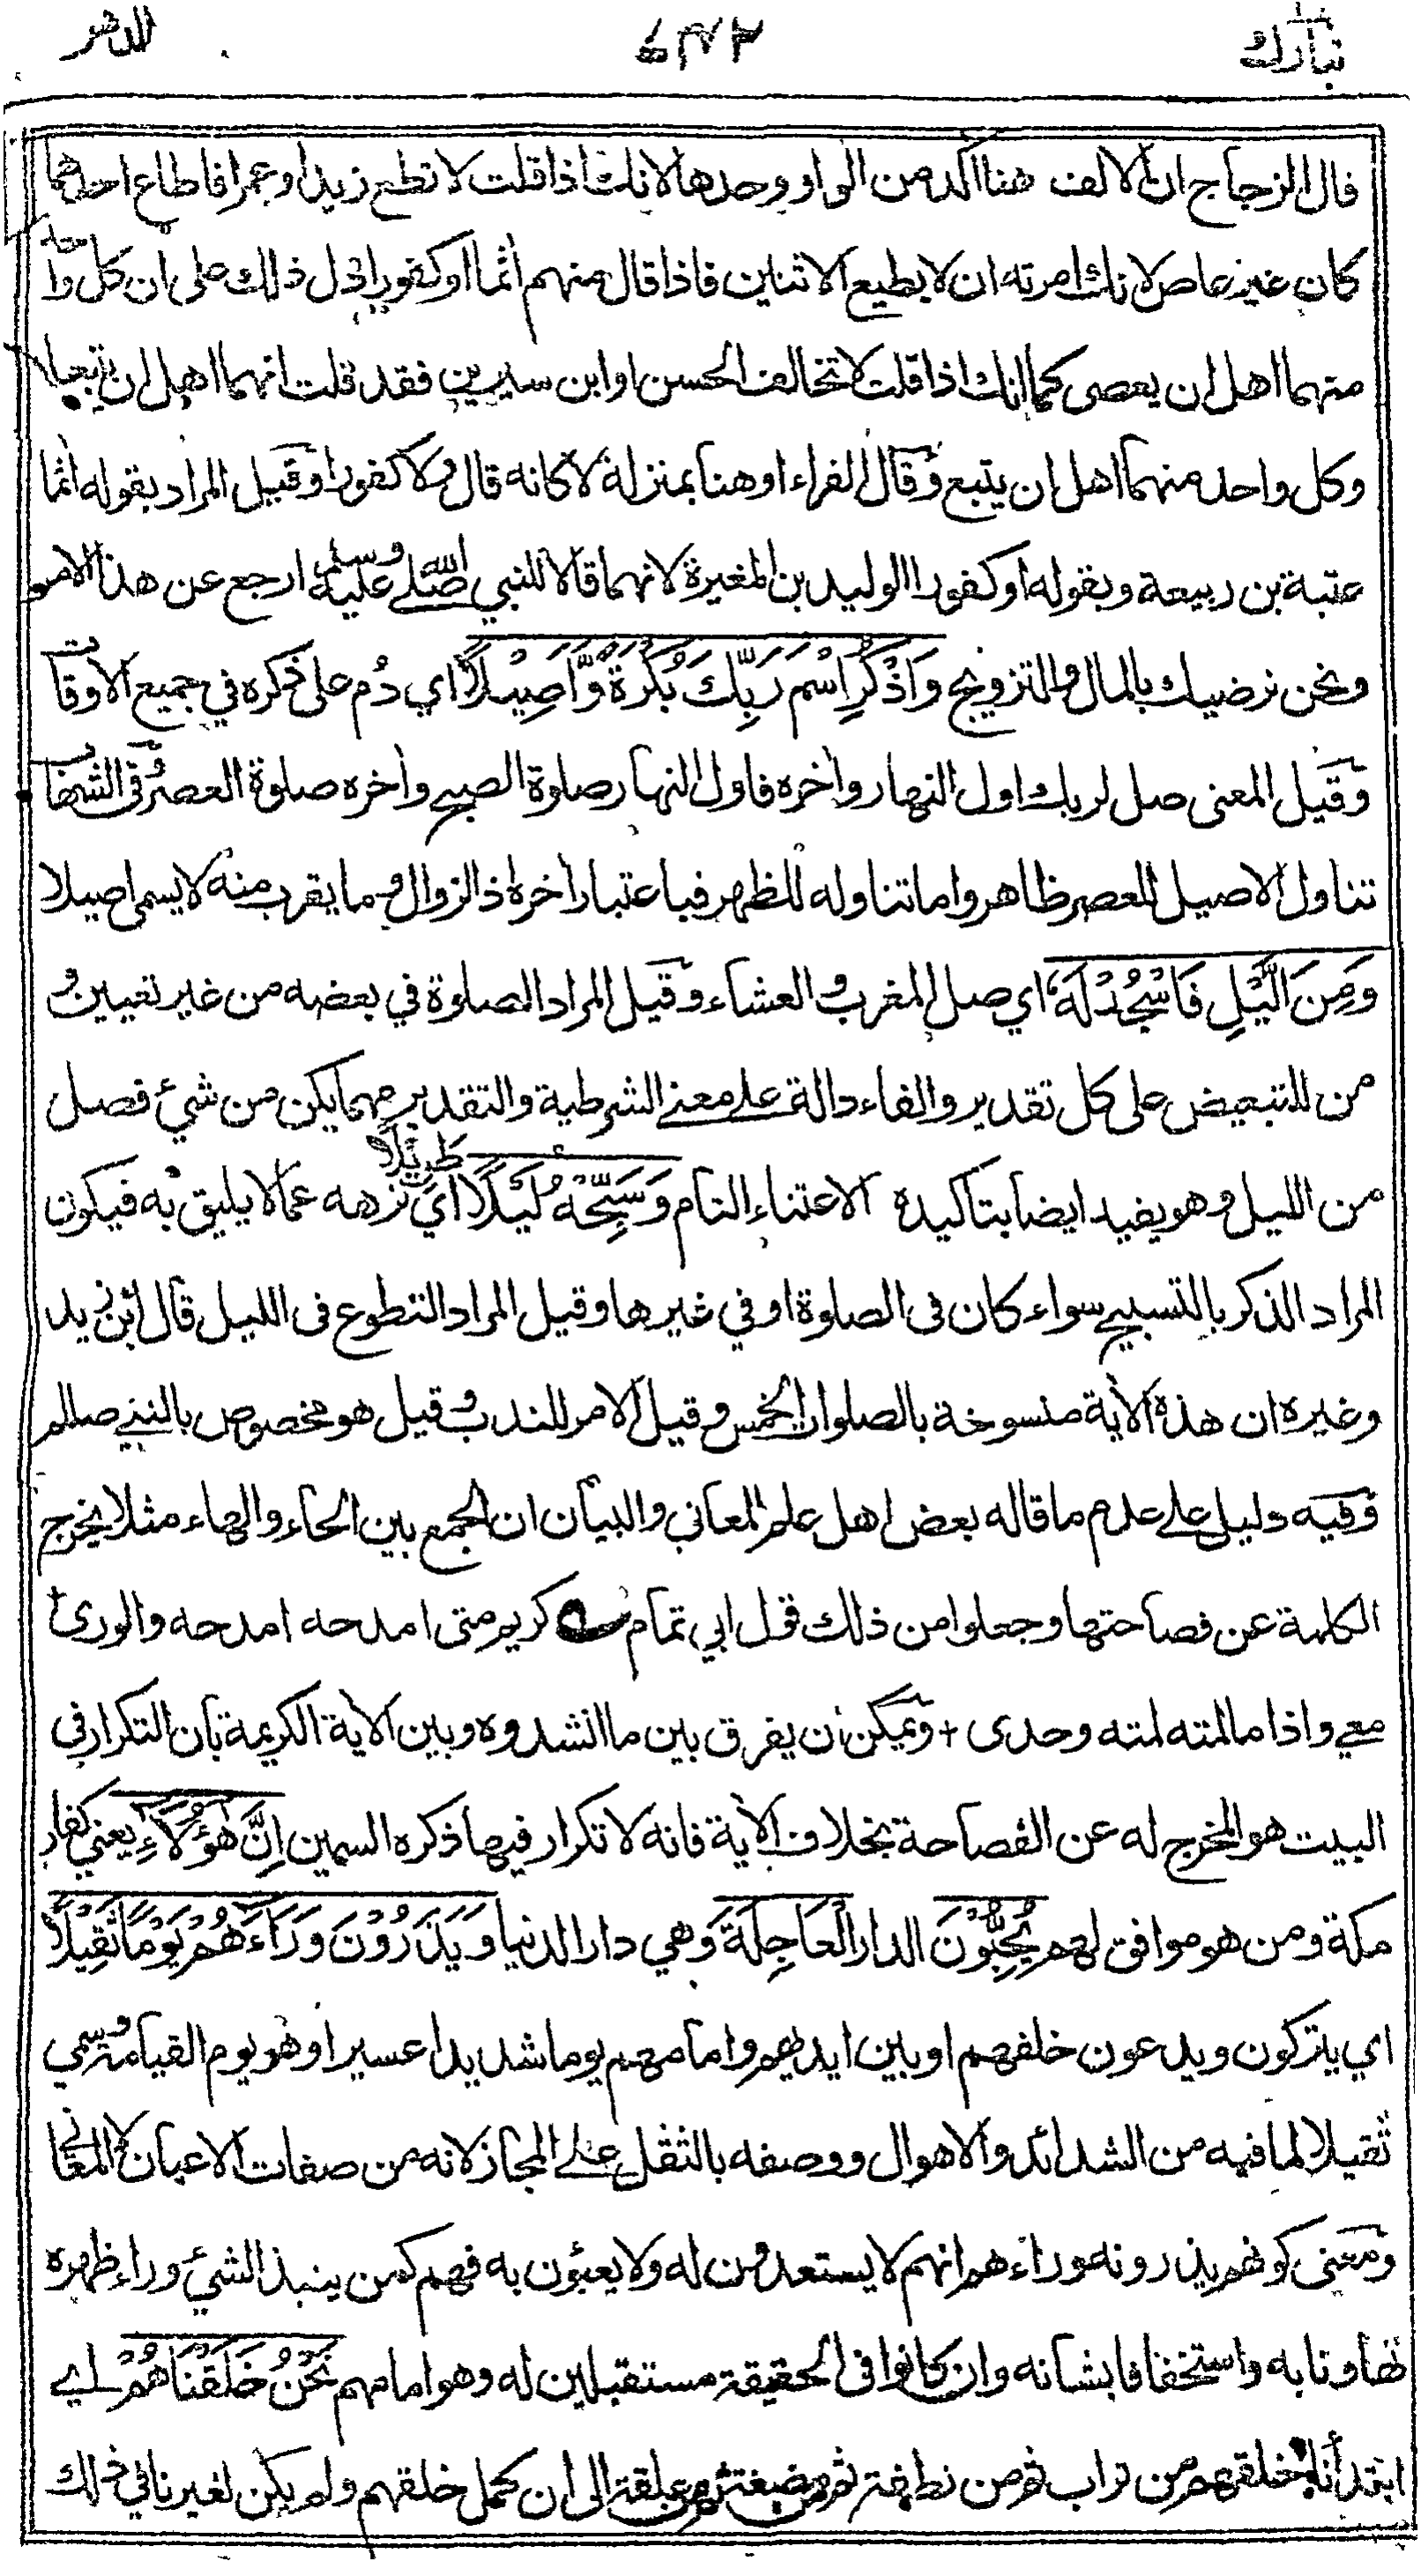 تبارك ٤٧٢ الدهر
قال الزجاج ان الالف هنا اكد من الواو وحدها لانك اذا قلت لا تطع زيدا وعمرا فاطاع احدهما
كان غير عاص لانك امرته ان لا يطيع الاثنين فاذا قال منهم اٰثما او كفورا دل ذلك على ان كل واحد
منهما اهل ان يعصى كما انك اذا قلت لا تخالف الحسن او ابن سيرين فقد قلت انهما اهل ان يتبعا
وكل واحد منهما اهل ان يتبع وقال الفراء او هنا بمنزلة لا كانه قال ولا كفورا وقيل المراد بقوله اٰثما
عتبة بن ربيعة وبقوله او كفورا الوليد بن المغيرة لانهما قالا للنبي صلى الله عليه وسلم ارجع عن هذا الامر
ونحن نرضيك بالمال والتزويج وَاذْكُرِ اسْمَ رَبِّكَ بُكْرَةً وَّاَصِيْلًا اي دُم على ذكره في جميع الاوقات
وقيل المعنى صل لربك اول النهار واٰخره فاول النهار صلوة الصبح واٰخره صلوة العصر وفى الشهاب
تناول الاصيل للعصر ظاهر واما تناوله للظهر فباعتبار اٰخره اذ الزوال وما يقرب منه لا يسمى اصيلا
وَمِنَ الَّيْلِ فَاسْجُدْ لَهٗ اي صل المغرب والعشاء وقيل المراد الصلوة في بعضه من غير تعيين و
من للتبعيض على كل تقدير والفاء دالة على معنى الشرطية والتقدير مهما يكن من شيء فصل
من الليل وهو يفيد ايضا بتاكيده الاعتناء التام وَسَبِّحْهُ لَيْلًا طَوِيْلًا اي نزهه عما لا يليق به فيكون
المراد الذكر بالتسبيح سواء كان فى الصلوة او في غيرها وقيل المراد التطوع فى الليل قال ابن زيد
وغيره ان هذه الاٰية منسوخة بالصلوات الخمس وقيل الامر للندب وقيل هو مخصوص بالنبي صللم
وفيه دليل على عدم ما قاله بعض اهل علم المعاني والبيان ان الجمع بين الحاء والهاء مثلا يخرج
الكلمة عن فصاحتها وجعلوا من ذلك قول ابي تمام كريم متى امدحه امدحه والورى
معي واذا ما لمته لمته وحدى + ويمكن ان يفرق بين ما انشدوه وبين الاٰية الكريمة بان التكرار في
البيت هو المخرج له عن الفصاحة بخلاف الاٰية فانه لا تكرار فيها ذكره السمين اِنَّ هٰؤُلَاءِ يعني كفار
مكة ومن هو موافق لهم يُحِبُّوْنَ الدار الْعَاجِلَةَ وهي دار الدنيا وَيَذَرُوْنَ وَرَاءَهُمْ يَوْمًا ثَقِيْلًا
اي يتركون ويدعون خلفهم او بين ايديهم وامامهم يوما شديدا عسيرا وهو يوم القيامة وسمي
ثقيلا لما فيه من الشدائد والاهوال ووصفه بالثقل على المجاز لانه من صفات الاعيان لا المعاني
ومعنى كونهم يذرونه وراءهم انهم لا يستعدون له ولا يعبئون به فهم كمن ينبذ الشيء وراء ظهره
تهاونا به واستخفافا بشانه وان كانوا فى الحقيقة مستقبلين له وهو امامهم نَحْنُ خَلَقْنَاهُمْ اي
ابتدأنا خلقهم من تراب ثم من نطفة ثم من مضغة ثم من علقة الى ان كمل خلقهم ولم يكن لغيرنا في ذلك